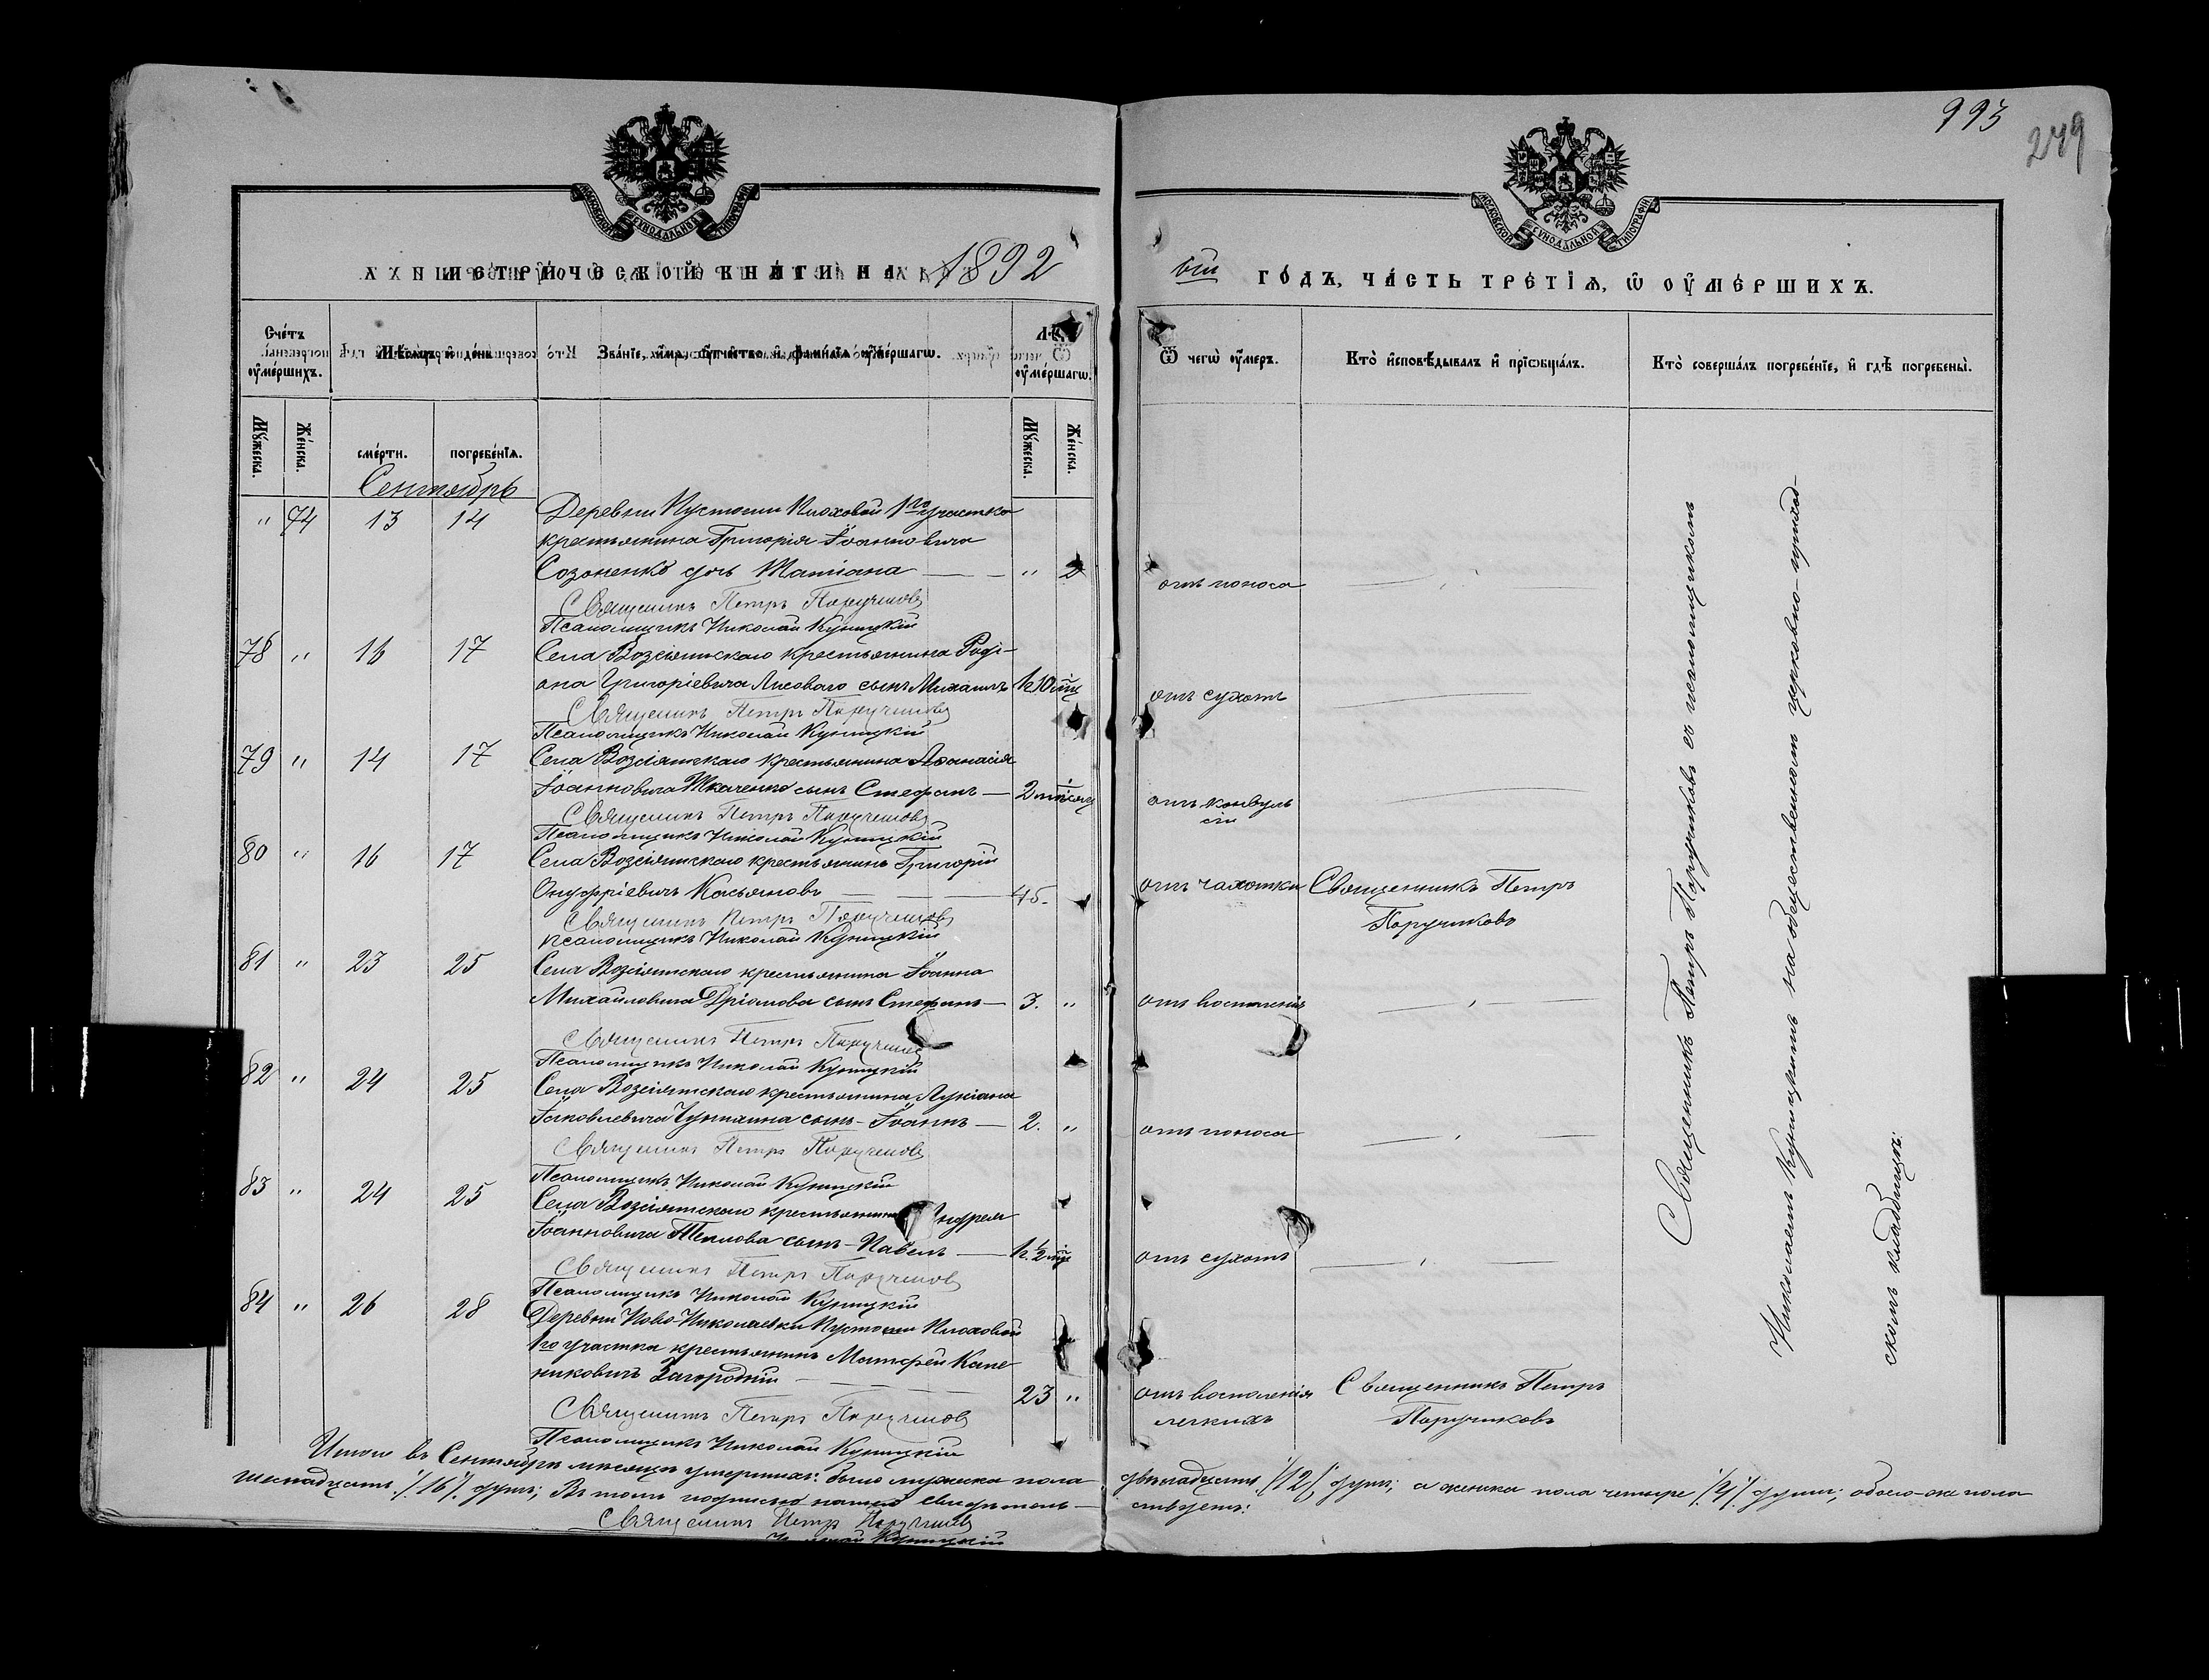 993
249
МОСКОВСКОЙ СѴНОДАЛЬНОЙ ТИПОГРАФІИ
МОСКОВСКОЙ СѴНОДАЛЬНОЙ ТИПОГРАФІИ
МЕТРИЧЕСКОЙ КНИГИ НА 1892
ый ГОДЪ, ЧАСТЬ ТРЕТІѦ, Ѡ ОУМЕРШИХЪ.
Счетъ оумершихъ.
Мѣсяцъ и день
Званіе, имя, отчество и фамилія оумершагѡ.
Лѣта оумершагѡ.
Ѿ чегѡ оумеръ.
Кто исповѣдывалъ и пріѡбщалъ.
Кто совершалъ погребеніе, и гдѣ погребены.
Мужеска. Женска. смерти. погребенія. Мужеска. Женска.
Сентябрь
" 74 13 14 Деревни Пустоши Плоховой 1го участка
крестьянина Григорія Іоанновича
Созоненко дочь Татіана — " 2 отъ поноса
Священникъ Петръ Поручиковъ
Псаломщикъ Николай Куницкій
78 " 16 17 Села Возсіятскаго крестьянина Роді-
она Григоріевича Лисоваго сынъ Михаилъ отъ сухотъ
Священникъ Петръ Поручиковъ
Псаломщикъ Николай Куницкій
79 " 14 17 Села Возсіятскаго крестьянина Аѳанасія
Іоанновича Ткаченко сынъ Стефанъ — 2 отъ конвуль
сіи
Священникъ Петръ Поручиковъ
Псаломщикъ Николай Куницкій
80 " 16 17 Села Возсіятскаго крестьянинъ Григорій
Онуфріевичъ Касьяновъ — 45. отъ чахотки Священникъ Петръ
Поручиковъ
Священникъ Петръ Поручиковъ
Псаломщикъ Николай Куницкій
81 " 23 25 Села Возсіятскаго крестьянина Іоанна
Михайловича сынъ Стефанъ — 3. " отъ воспаленія
Священникъ Петръ Поручиковъ
Псаломщикъ Николай Куницкій
82 " 24 25 Села Возсіятскаго крестьянина Лукіана
Іаковлевича сынъ - Іоаннъ — 2. " отъ поноса
Священникъ Петръ Поручиковъ
Псаломщикъ Николай Куницкій
83 " 24 25 Села Возсіятскаго крестьянина Андрея
Іоанновича Теплова сынъ - Павелъ — отъ сухотъ
Священникъ Петръ Поручиковъ
Псаломщикъ Николай Куницкій
84 " 26 28 Деревни Ново-Николаевки Пустоши Плоховой
1го участка крестьянинъ Матфей
Загородній — 23 " отъ воспаленія Священникъ Петръ
легкихъ Поручиковъ
Священникъ Петръ Поручиковъ
Псаломщикъ Николай Куницкій
Священникъ Петръ Поручиковъ съ псаломщикомъ
Николаемъ Куницкимъ на общественномъ церковно-приход-
скомъ кладбищѣ.
Итого въ Сентябрѣ мѣсяцѣ умершихъ: было мужеска пола двѣнадцать /12/ душъ; а женска пола четыре /4/ души; обоего-же пола
шеснадцать /16/ душъ; Въ томъ подписью нашею свидѣтель-
ствуемъ:
Священникъ Петръ Поручиковъ
Николай Куницкій